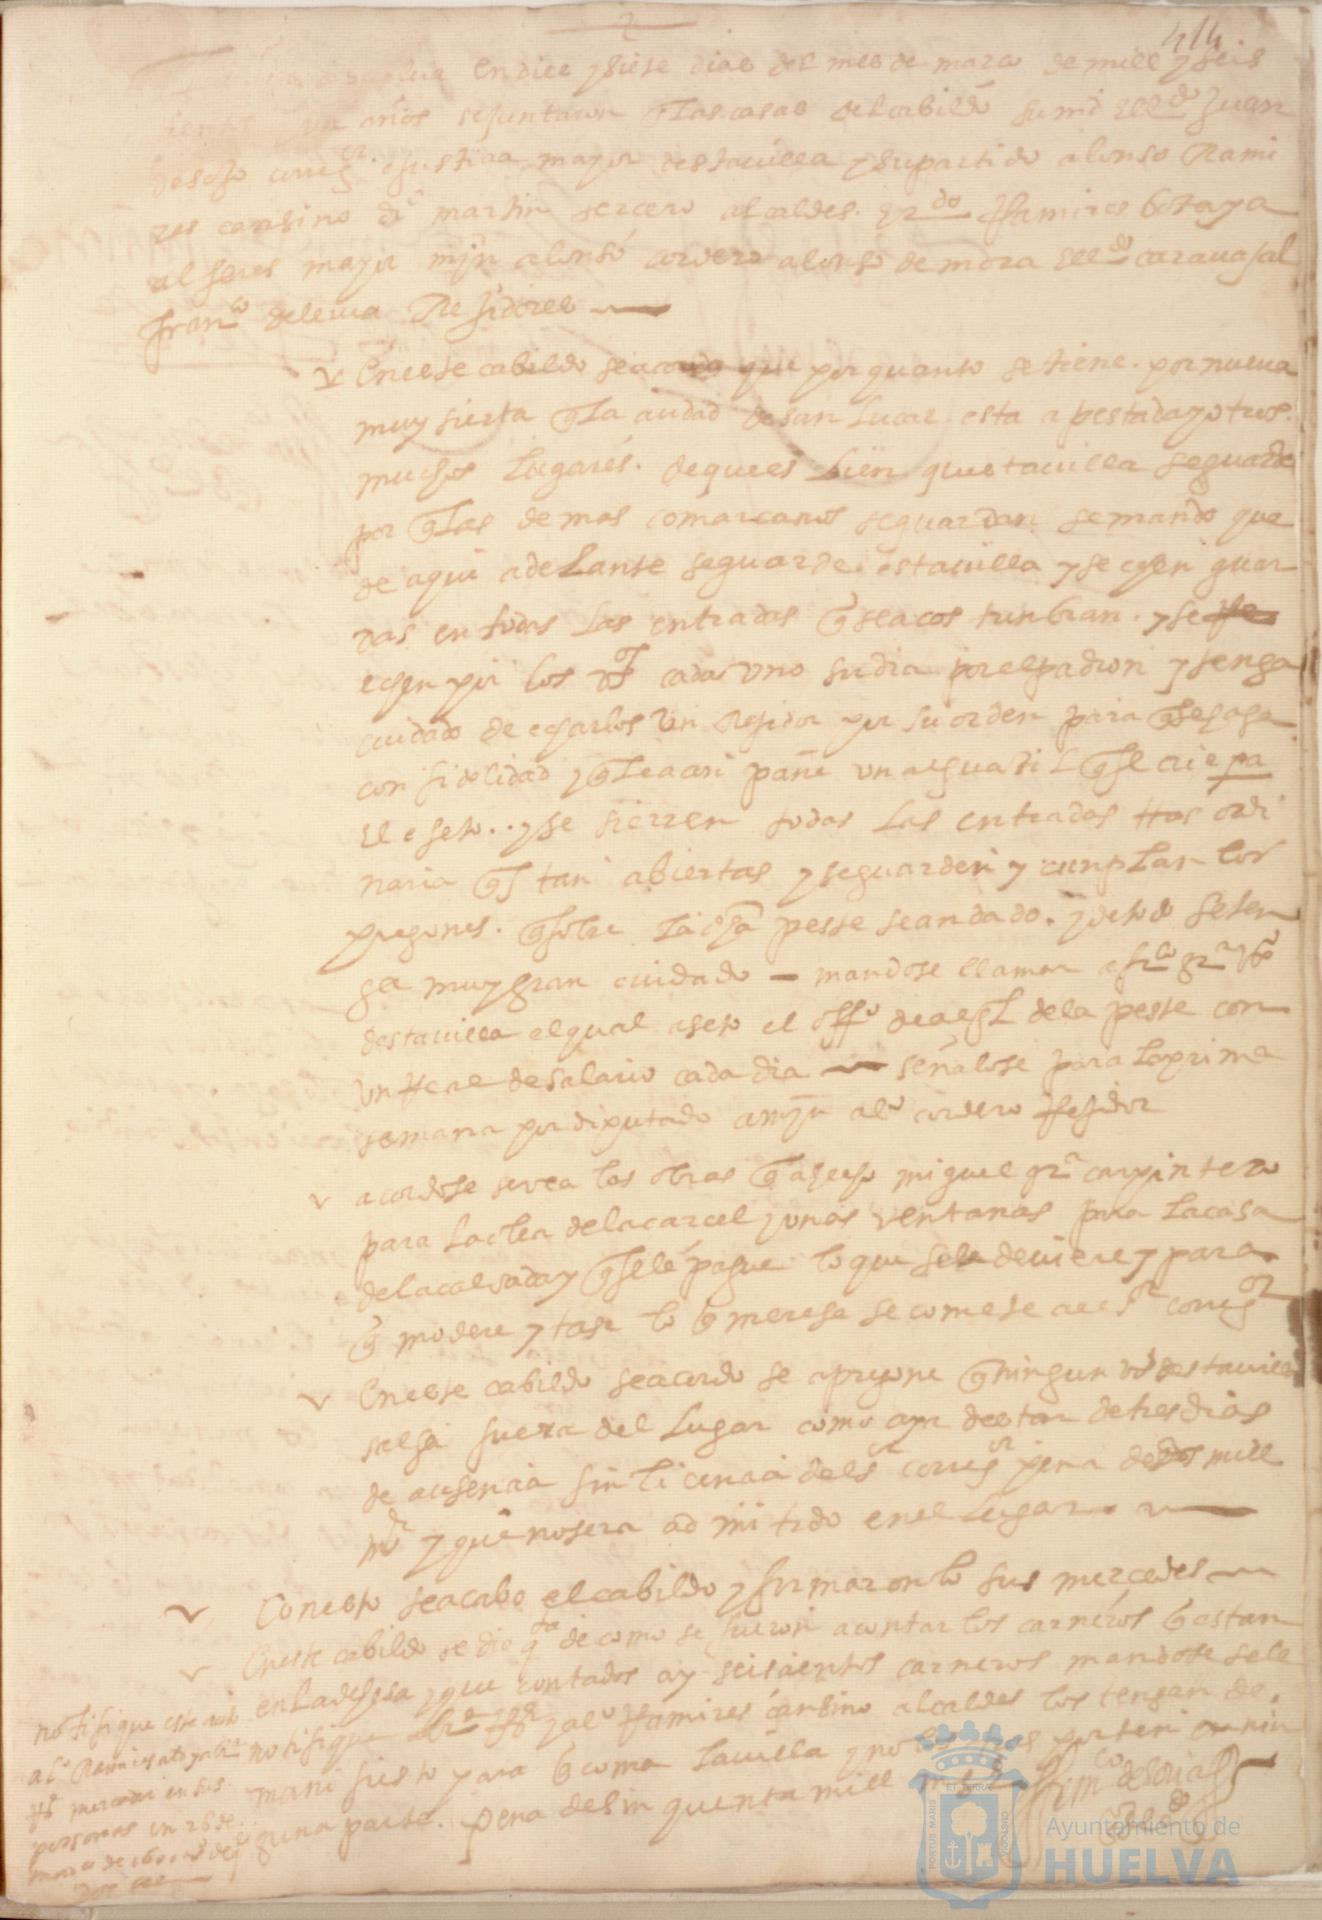 414
en dies y siete dias del mes de março de mill y seis
años se juntaron las casas del cabildo su md el ldo Juan
de soto corregor justicia mayor desta villa y su partido alonso Rami
res cansino martin sercero alcaldes Ramires botaya
alferes mayor mjn alonso cordero alonso de mora el ldo caravajal
franco de leiva Regidores
En este cabildo se acordo que por quanto se tiene por nueva
muy sierta q la ciudad de san lucar esta apestada y otros
muchos lugares de que es bien questa villa se guarde
por q las demas comarcanos se guardan se mando que
de aqui adelante se guarde esta villa y se echen guar
das en todas las entradas q se acostunbran y se
echen por los vos cada uno su dia por el padron y tenga
cuidado de echarlos un Regidor por su orden para q se haga
con fidelidad y q un alguasil q se crie pa
el efeto y se sierren todas las entradas mas ordi
naria q stan abiertas y se guarden y cunplan los
pregones q sobre la dha peste se an dado y de todo se ten
ga muy gran cuidado mandose llamar a
desta villa el qual aseto el offo de algl de la peste con
un Real de salario cada dia señalose para la prime
semana por diputado a mjn alo cordero Regidor
acordose se vea las obras q a hecho miguel grs carpintero
para la obra de la carcel y unas ventanas para la casa
de la calsada y q se le pague lo que se le deviere y para
q modere y tase lo q merese se comete al sr corregor
En este cabildo se acordo se apregone q ningun vo desta villa
salga fuera del lugar como aya de estar de tres dias
de ausencia sin licencia del sr corregor pena de dos mill
mrs y que no sera admitido en el lugar
Con esto se acabo el cabildo y firmaronlo sus mercedes
En este cabildo se dio de como se fueron a contar los carneros q estan
en la dehesa y que contados ay seisientos carneros mandose se le
notifique y alo Ramires cansino alcaldes los tengan de
manifiesto para q coma la villa y no los en nin
guna parte pena de sinquenta mill
notifique este auto
alo Ramires
en sus
personas en 26 de
março de
Ayuntamiento de
HUELVA
PORTUS MARIS
ET TERRAE
CUSTODIA